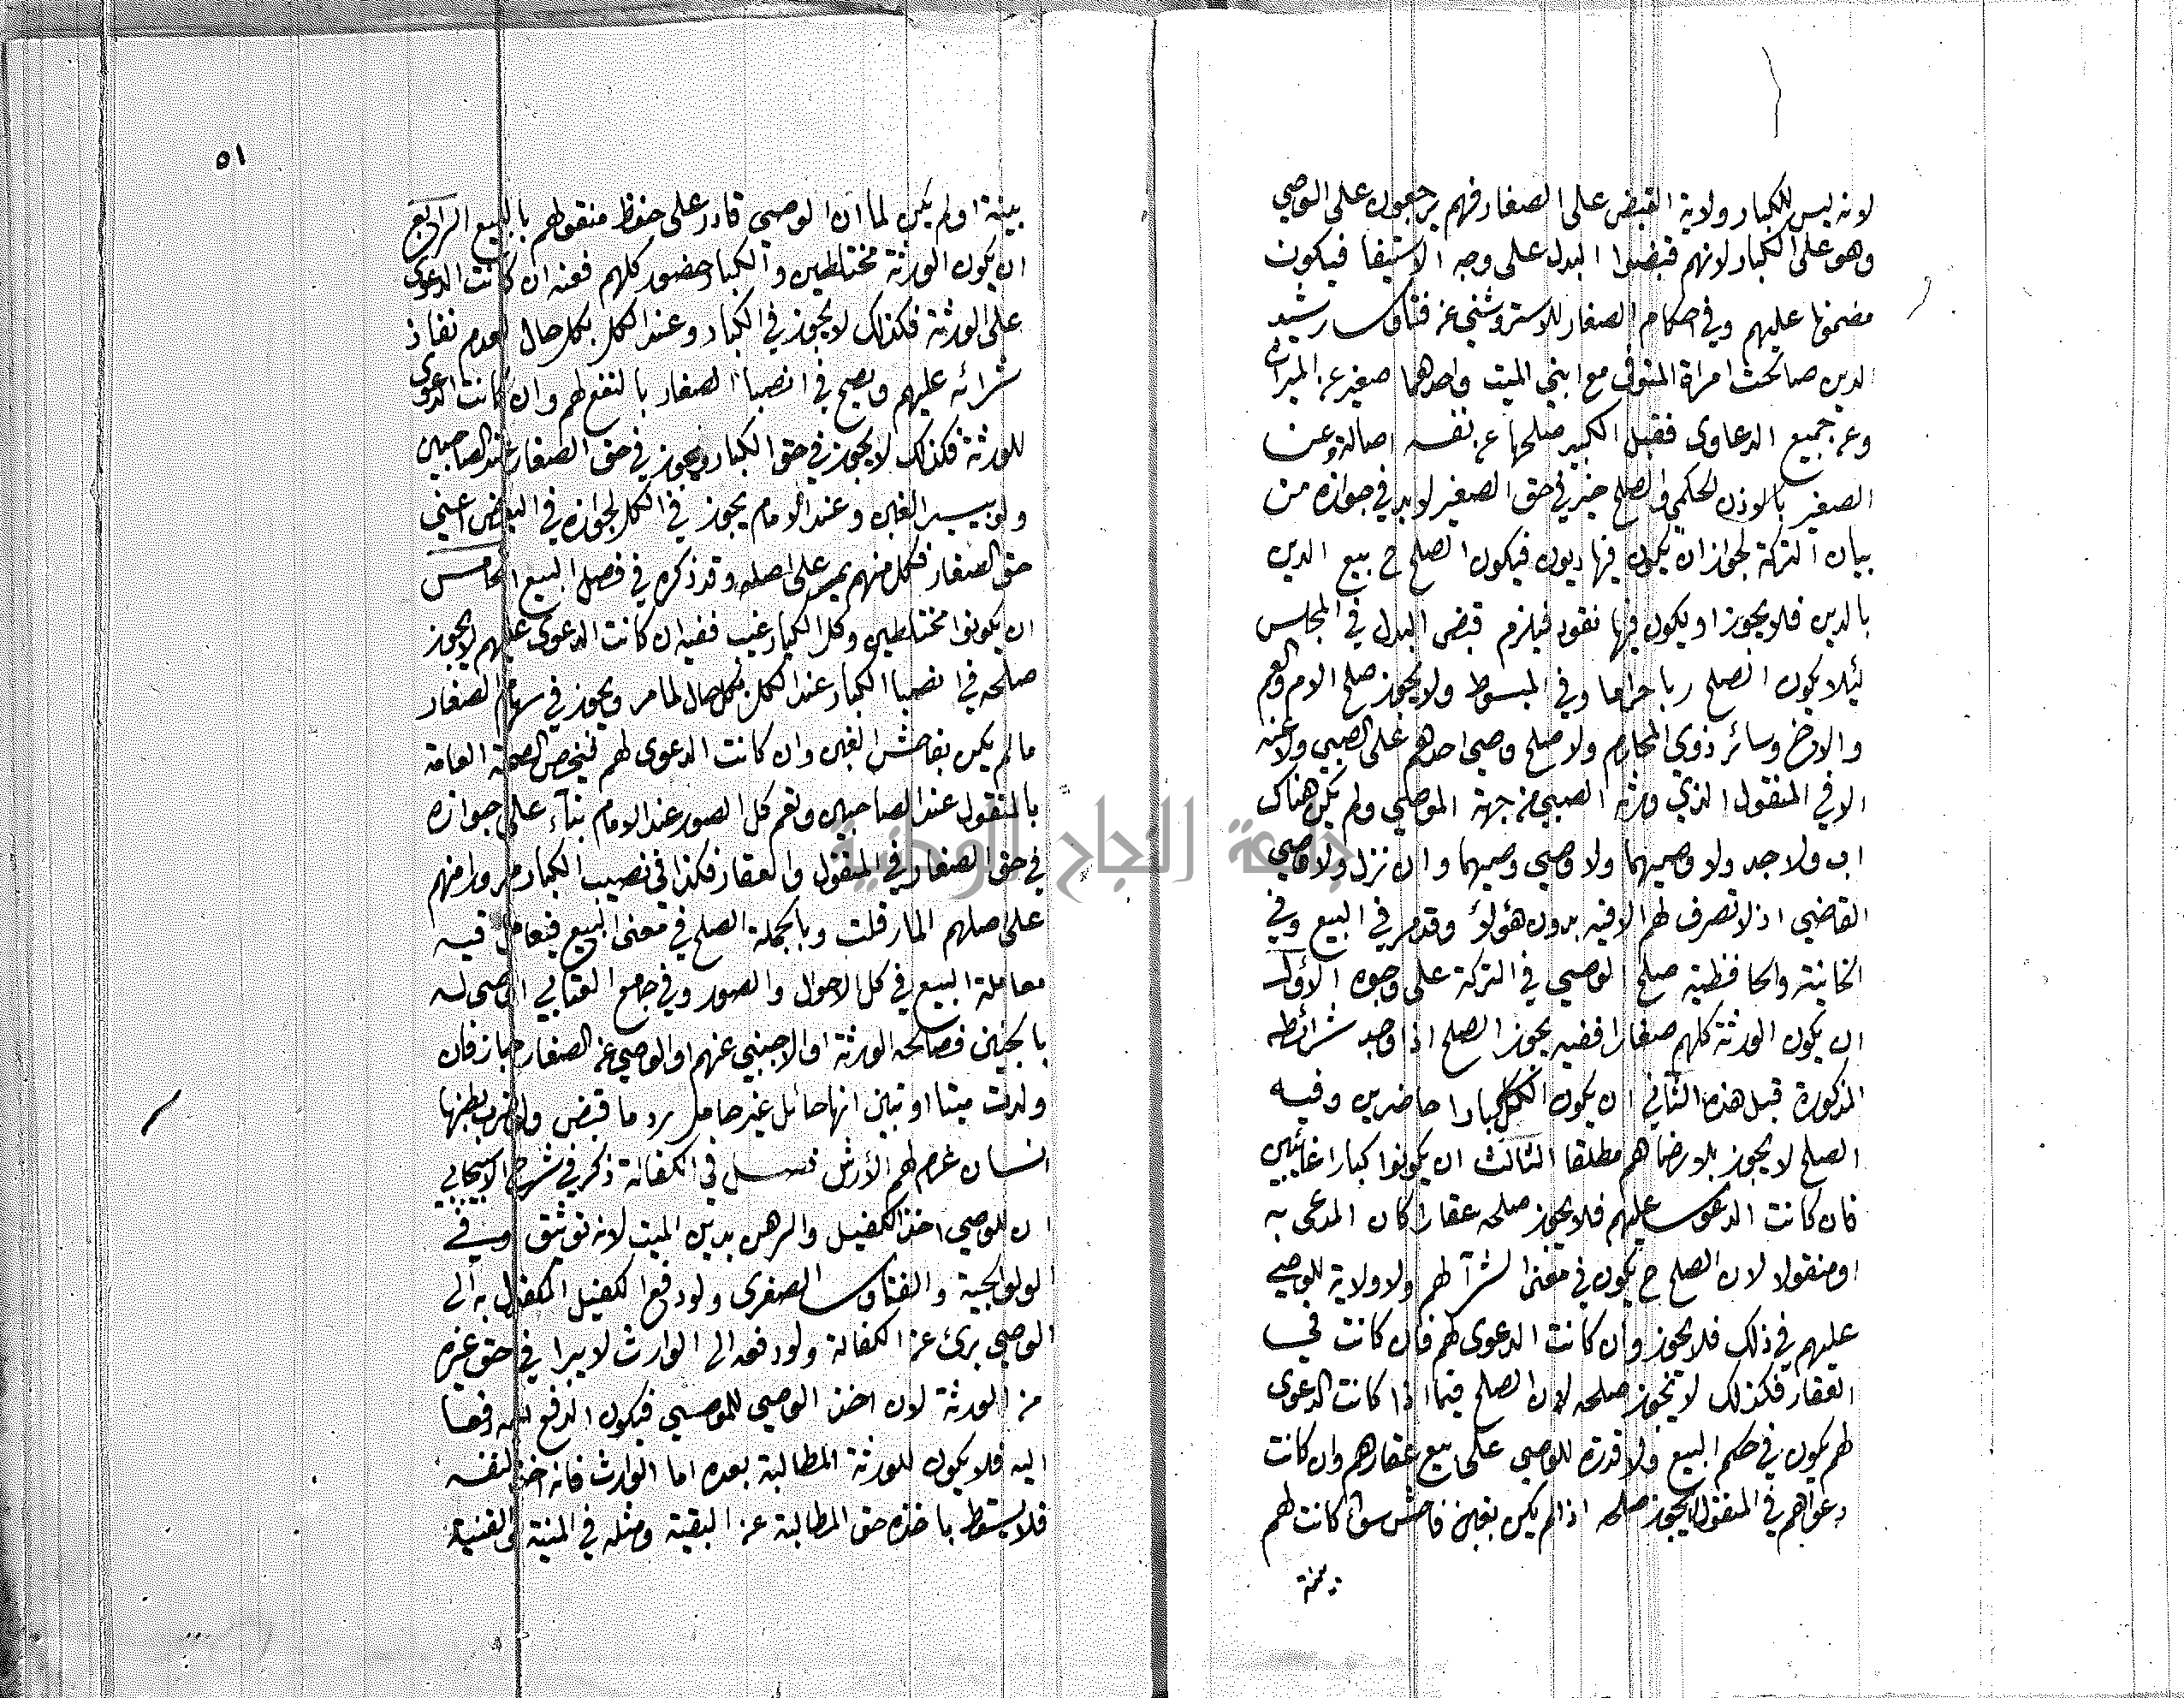 لانه ليس للكبار ولاية القبض على الصغار فهم يرجعون على الوصي
وهو على الكبار لانهم قبضوا البدل على وجه الاستيفا فيكون
مضمونا عليهم وفي احكام الصغار للاستروشني عن فتاوى رشيد
الدين صالحت امراة المتوفى مع ابني الميت واحدهما صغير عن الميراث
وعن جميع الدعاوى فقبل الكبير صلحها عن نفسه اصالة وعن
الصغير بالاذن الحكمي والصلح خير في حق الصغير لابد في جوازه من
بيان التركة لجواز ان يكون فيها ديون فيكون الصلح ح بيع الدين
بالدين فلا يجوز او يكون فيها نقود فيلزم قبض البدل في المجلس
لئلا يكون الصلح ربا حراما وفي المبسوط ولا يجوز صلح الام والعم
والاخ وسائر ذوي المحارم ولا صلح وصي احدهم على الصبي ولا عنه
الا في المنقول الذي ورثه الصبي من جهة الموصي ولم يكن هناك
اب ولا جد ولا وصيهما ولا وصي وصيهما وان نزل ولا وصي
القاضي اذ لا تصرف لهم الا فيه بدون هؤلاء وقد مر في البيع وفي
الخانية والحافظية صلح الوصي في التركة على وجوه الاول
ان يكون الورثة كلهم صغارا ففيه يجوز الصلح اذا وجد شرائطه
المذكورة قبل هذه الثاني ان يكون الكل كبارا حاضرين وفيه
الصلح لا يجوز بلا رضاهم مطلقا الثالث ان يكونوا كبارا غائبين
فان كانت الدعوى عليهم فلا يجوز صلحه عقارا كان المدعى به
او منقولا لان الصلح ح يكون في معنى الشرآ لهم ولا ولاية للوصي
عليهم في ذلك فلا يجوز وان كانت الدعوى لهم فان كانت في
العقار فكذلك لا يجوز صلحه لان الصلح فيما اذا كانت الدعوى
لهم يكون في حكم البيع ولا قدرة للوصي على بيع عقارهم وان كانت
دعواهم في المنقول يجوز صلحه اذا لم يكن بغبن فاحش سوآ كانت لهم
بينة
٥١
بينة او لم يكن لما ان الوصي قادر على حفظ منقولهم بالبيع الرابع
ان يكون الورثة مختلطين والكبار حضور كلهم فعنه ان كانت الدعوى
على الورثة فكذلك لا يجوز في الكبار وعند الكل بكل حال لعدم نفاذ
شرائه عليهم ويصح في انصبا الصغار بالنفع لهم وان كانت الدعوى
للورثة فكذلك لا يجوز في حق الكبار ويجوز في حق الصغار عند الصاحبين
ولو بيسير الغبن وعند الامام يجوز في الكل لجوازه في البعض اعني
حق الصغار فكل منهم يمر على اصله وقد ذكره في فصل البيع الخامس
ان يكونوا مختلطين وكل الكبار غيب ففيه ان كانت الدعوى عليهم لا يجوز
صلحه في انصبا الكبار عند الكل بكل حال لما مر ويجوز في سهام الصغار
ما لم يكن بفاحش الغبن وان كانت الدعوى لهم فيخص الصحة العامة
بالمنقول عند الصاحبين وتعم كل الصور عند الامام بنآء على جوازه
في حق الصغار في المنقول والعقار فكذا في نصيب الكبار مرورا منهم
على اصلهم المار قلت وبالجملة الصلح في معنى البيع فيعامل فيه
معاملة البيع في كل الاحوال والصور وفي جامع العتابي اوصى له
بالجنين فصالحه الورثة او الاجنبي عنهم او الوصي عن الصغار جاز فان
ولدت ميتا او تبين انها حائل غير حامل رد ما قبض ولو ضرب بطنها
انسان غرم لهم الأرش فصل في الكفالة ذكر في شرح الاسبيجابي
ان للوصي اخذ الكفيل والرهن بدين الميت لانه توثيق وفي
الولوالجية والفتاوى الصغرى ولو دفع الكفيل المكفول به الى
الوصي برئ عن الكفالة ولو دفعه الى الوارث لا يبرا في حق غيره
من الورثة لان اخذ الوصي للموصي فيكون الدفع اليه دفعا
اليه فلا يكون للورثة المطالبة بعده اما الوارث فانه اخذ لنفسه
فلا يسقط باخذه حق المطالبة عن البقية ومثله في المنية والغنية
جامعة النجاح الوطنية